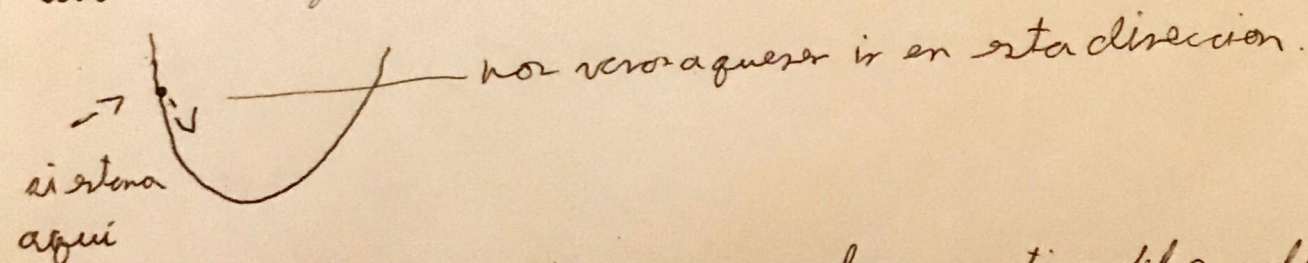 nos vamos a querer ir en esta direccion.
si estama
aquí